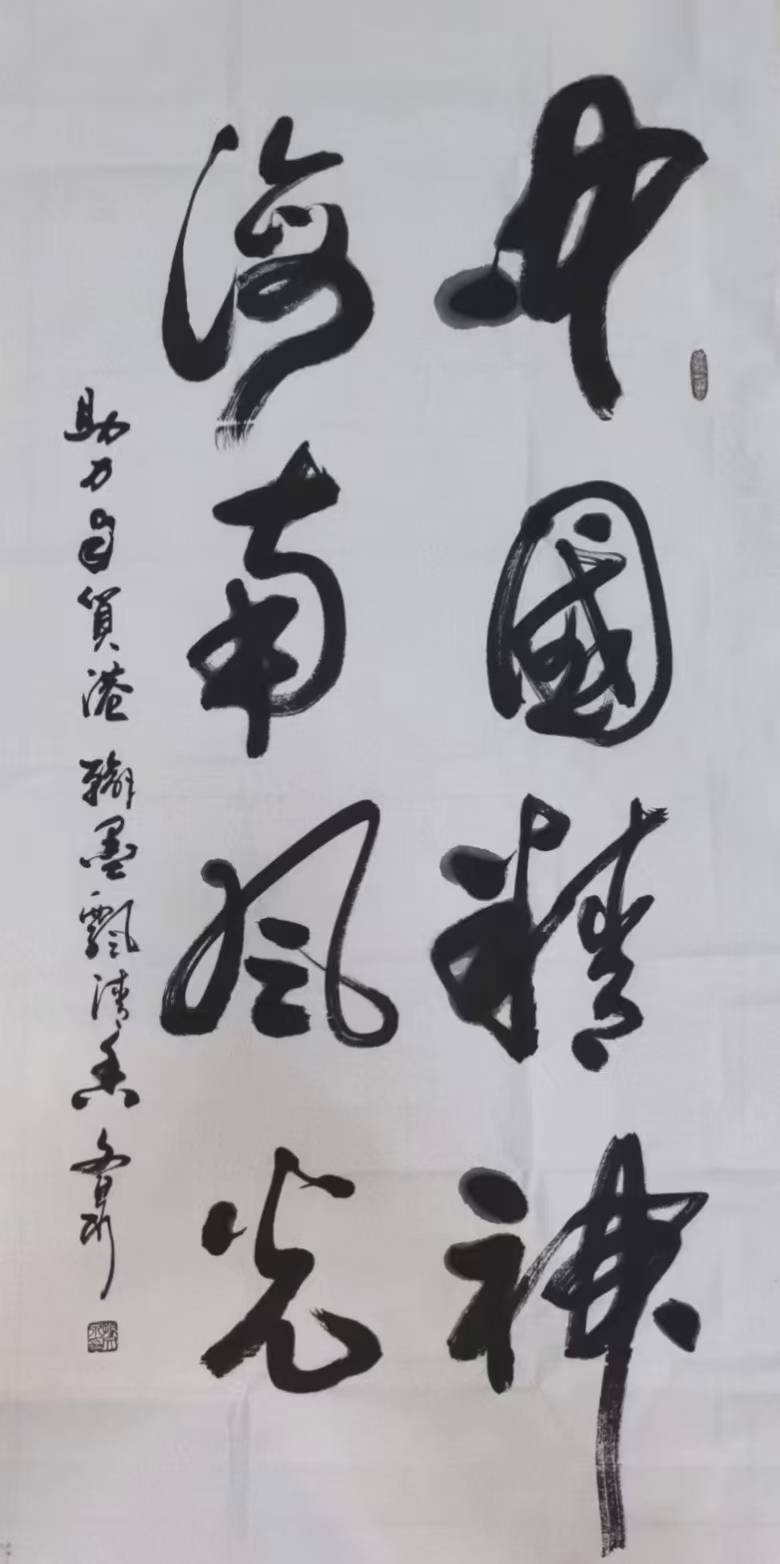 中國精神
海南风光
助力自貿港 翰墨飄清香